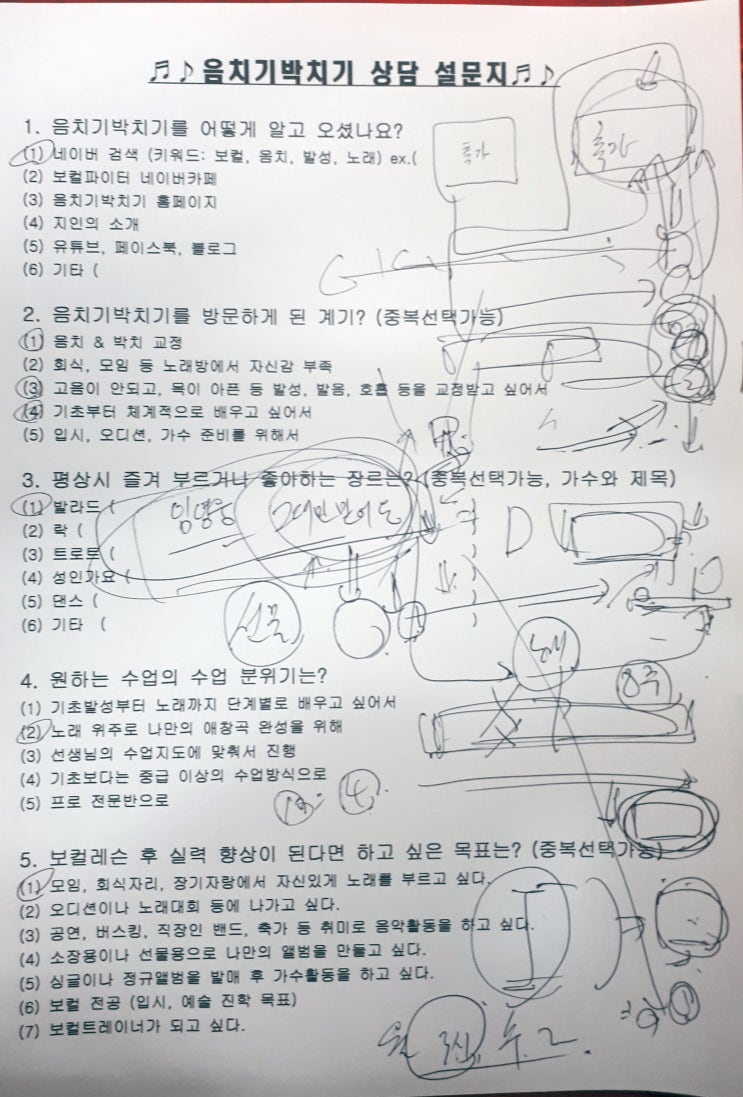 ♬♪음치기박치기 상담 설문지♬♪
1. 음치기박치기를 어떻게 알고 오셨나요?
(1) 네이버 검색 (키워드: 보컬, 음치, 발성, 노래) ex.(
(2) 보컬파이터 네이버카페
(3) 음치기박치기 홈페이지
(4) 지인의 소개
(5) 유튜브, 페이스북, 블로그
(6) 기타 (
2. 음치기박치기를 방문하게 된 계기? (중복선택가능)
(1) 음치 & 박치 교정
(2) 회식, 모임 등 노래방에서 자신감 부족
(3) 고음이 안되고, 목이 아픈 등 발성, 발음, 호흡 등을 교정받고 싶어서
(4) 기초부터 체계적으로 배우고 싶어서
(5) 입시, 오디션, 가수 준비를 위해서
3. 평상시 즐겨 부르거나 좋아하는 장르는? (중복선택가능, 가수와 제목)
(1) 발라드 ( 임영웅
(2) 락 (
(3) 트로트 (
(4) 성인가요 (
(5) 댄스 (
(6) 기타 (
4. 원하는 수업의 수업 분위기는?
8주
(1) 기초발성부터 노래까지 단계별로 배우고 싶어서
(2) 노래 위주로 나만의 애창곡 완성을 위해
(3) 선생님의 수업지도에 맞춰서 진행
(4) 기초보다는 중급 이상의 수업방식으로
(5) 프로 전문반으로
5. 보컬레슨 후 실력 향상이 된다면 하고 싶은 목표는? (중복선택가능)
(1) 모임, 회식자리, 장기자랑에서 자신있게 노래를 부르고 싶다.
(2) 오디션이나 노래대회 등에 나가고 싶다.
(3) 공연, 버스킹, 직장인 밴드, 축가 등 취미로 음악활동을 하고 싶다.
(4) 소장용이나 선물용으로 나만의 앨범을 만들고 싶다.
(5) 싱글이나 정규앨범을 발매 후 가수활동을 하고 싶다.
(6) 보컬 전공 (입시, 예술 진학 목표)
(7) 보컬트레이너가 되고 싶다.